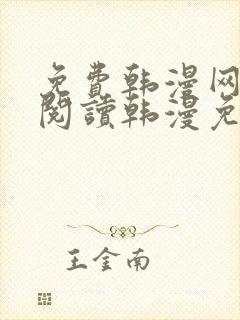 免费韩漫网
阅讀韩漫免
王金南